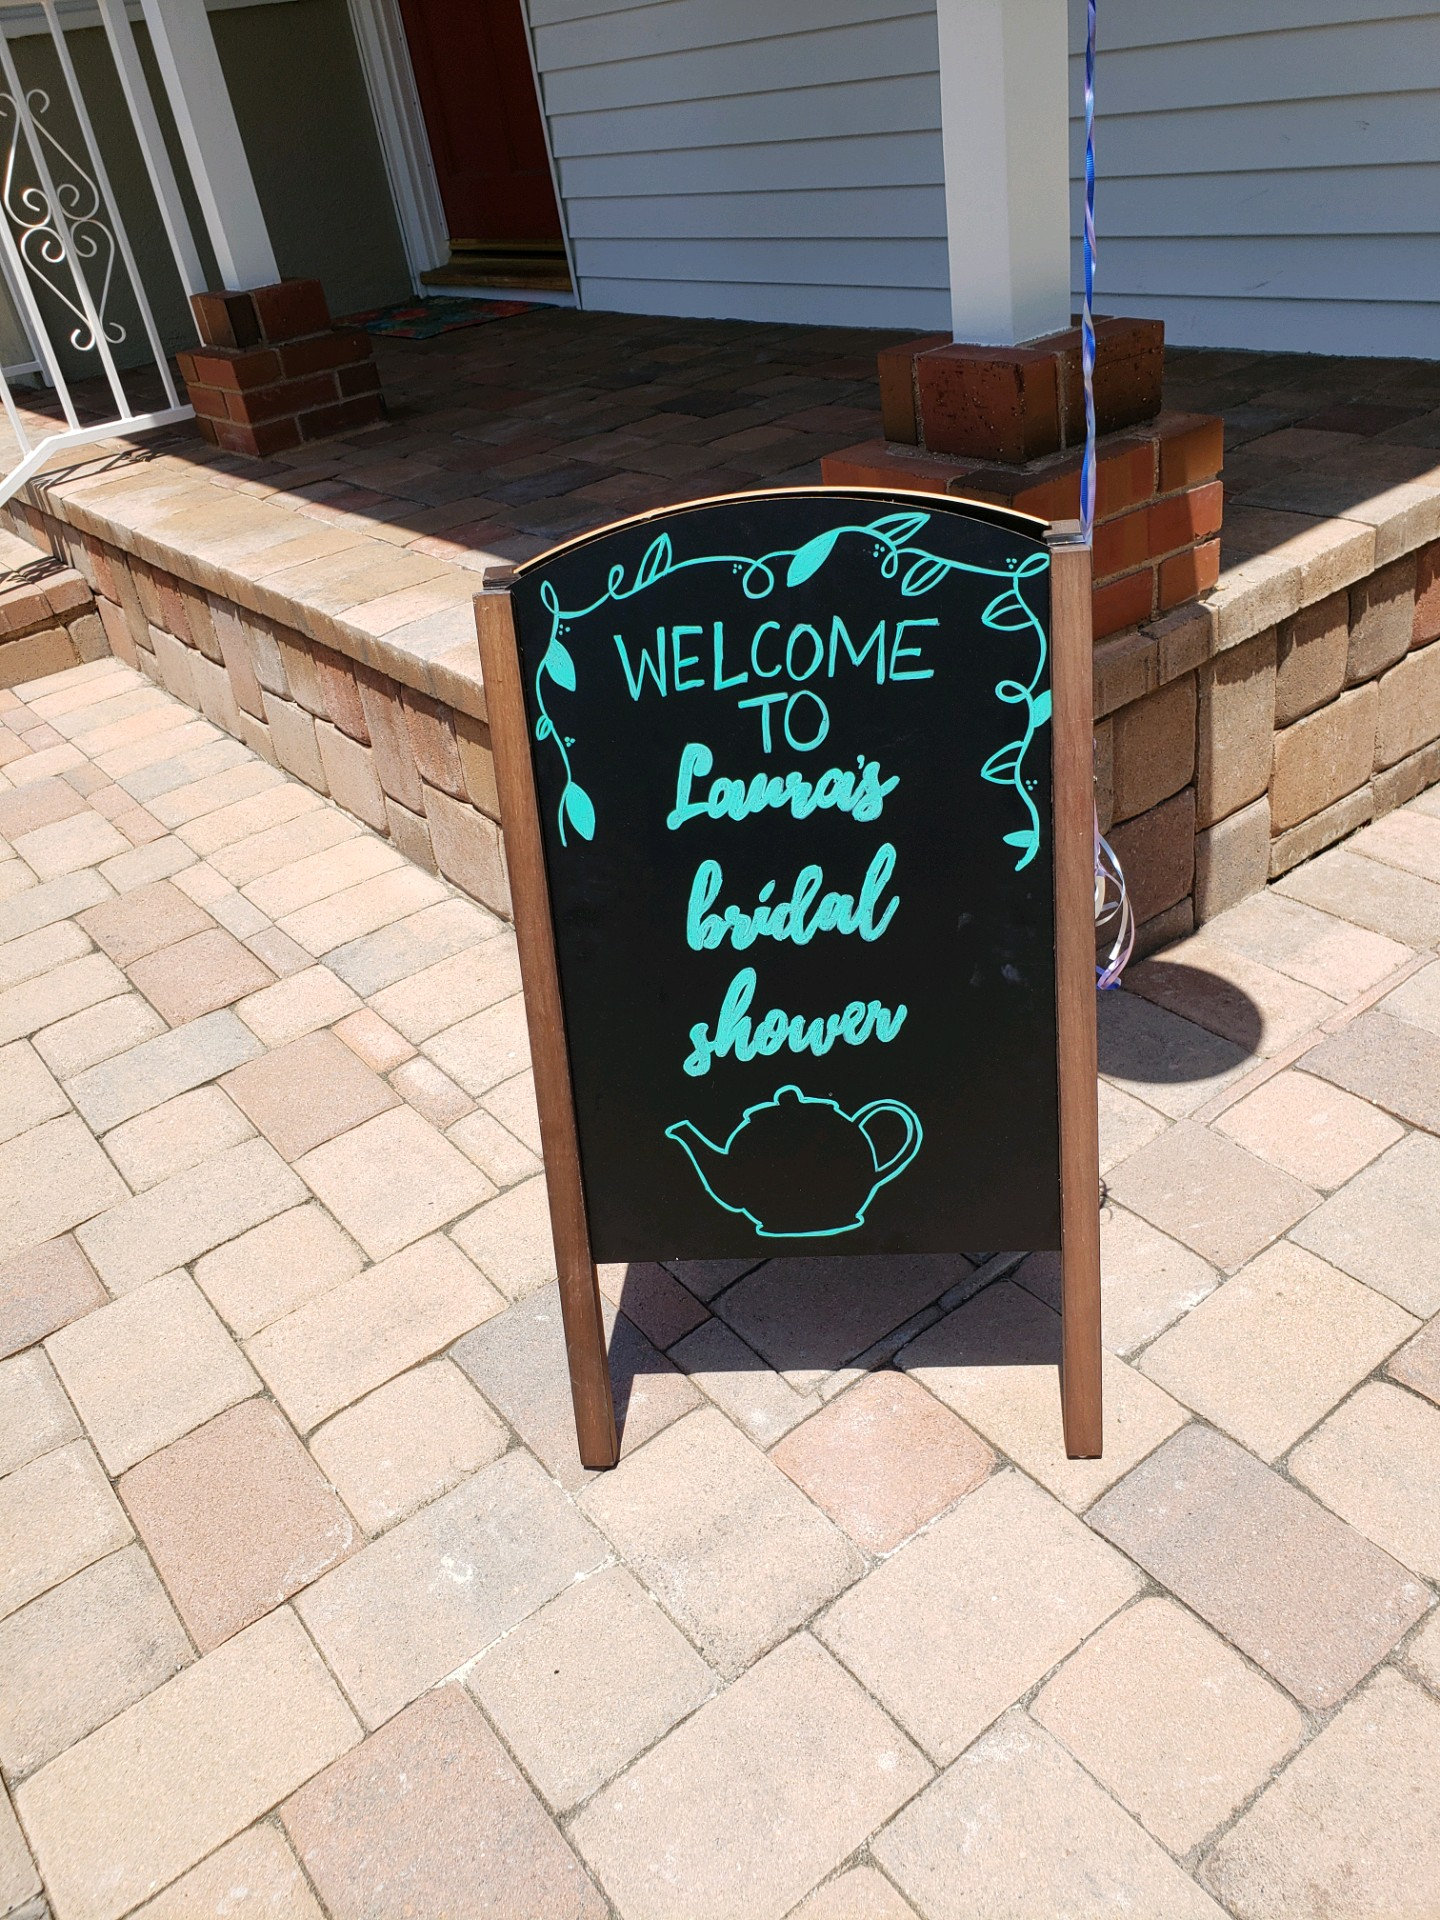 WELCOME
TO
Laura's
bridal
shower